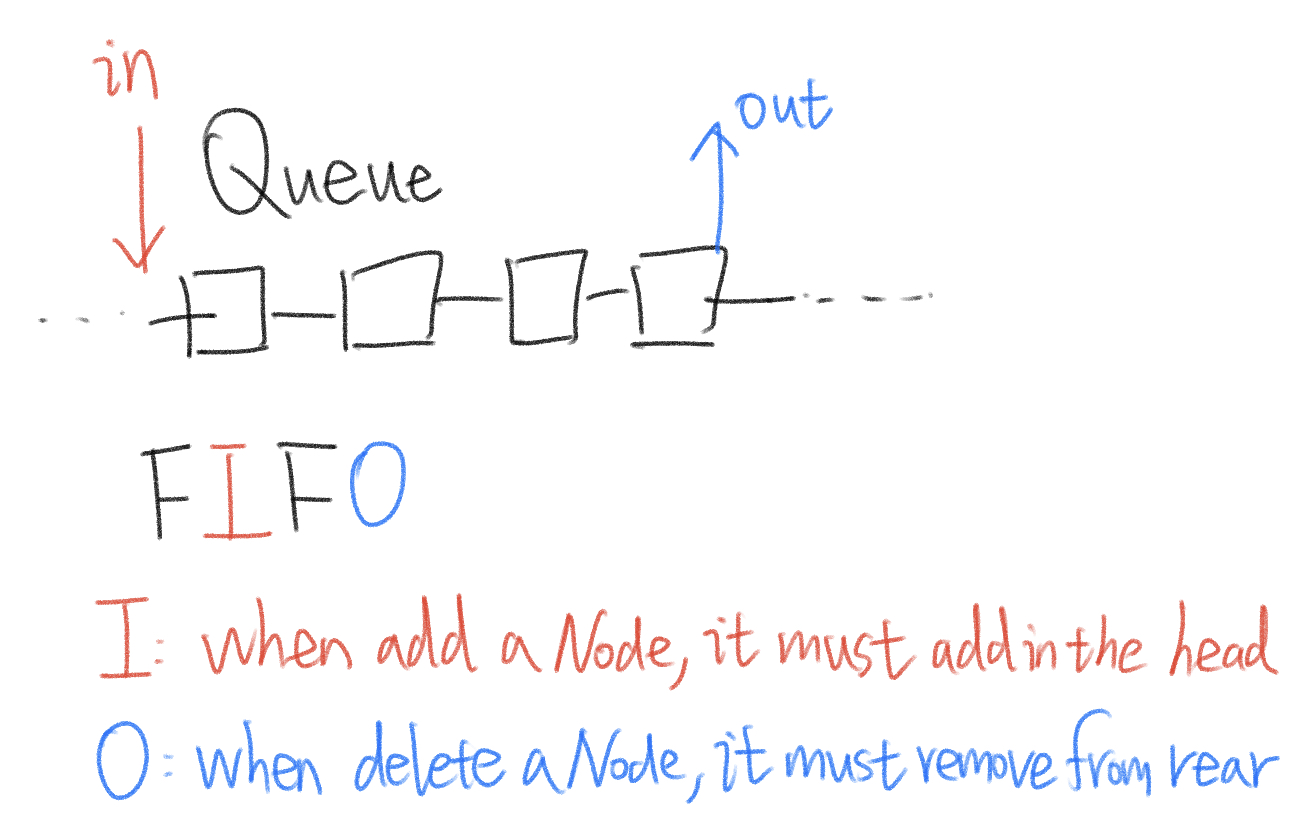 in
out
Queue
FIFO
I: when add a Node, it must add in the head
O: when delete a Node, it must remove from rear